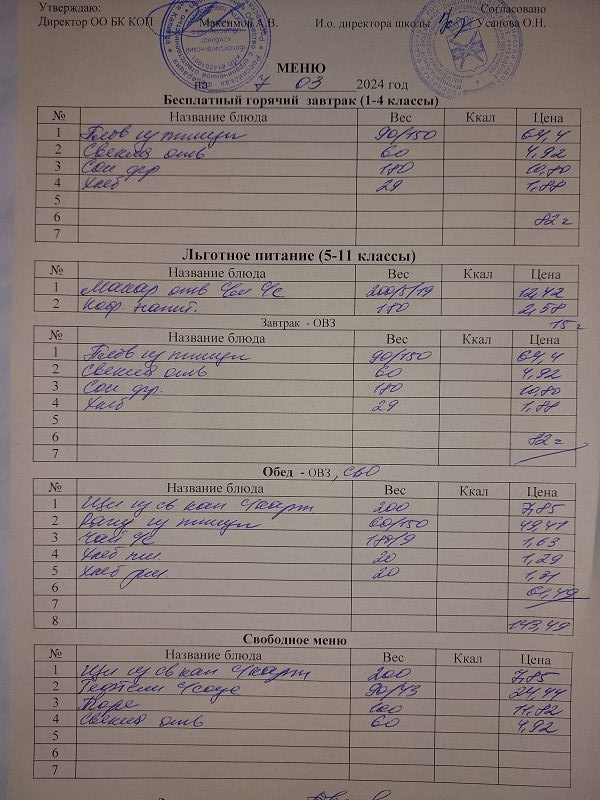 Утверждаю: Согласовано
Директор ОО БК КОП Максимов А.В. И.о. директора школы Усанова О.Н.
МЕНЮ
на 7 03 2024 год
Бесплатный горячий завтрак (1-4 классы)
№ Название блюда Вес Ккал Цена
1 Плов из птицы 90/150 64,4
2 Свекла отв 60 4,92
3 Сок фр 180 10,80
4 Хлеб 29 1,88
5
6 82=
7
Льготное питание (5-11 классы)
№ Название блюда Вес Ккал Цена
1 Макар отв 200/5/19 12,42
2 Коф напит. 180 2,58
Завтрак - ОВЗ 15=
№ Название блюда Вес Ккал Цена
1 Плов из птицы 90/150 64,4
2 Свекла отв 60 4,92
3 Сок фр. 180 10,80
4 Хлеб 29 1,88
5
6 82=
7
Обед - ОВЗ, СВО
№ Название блюда Вес Ккал Цена
1 Щи из св кап 200 7,85
2 Рагу из птицы 60/150 49,41
3 Чай 1,63
4 Хлеб пш. 20 1,29
5 Хлеб рж. 20 1,31
6 61,49
7
8 143,49
Свободное меню
№ Название блюда Вес Ккал Цена
1 Щи из св кап 200 7,85
2 Тефтели с/соус 90/43 24,44
3 Пюре 100 11,82
4 Свекла отв 60 4,92
5
6
7